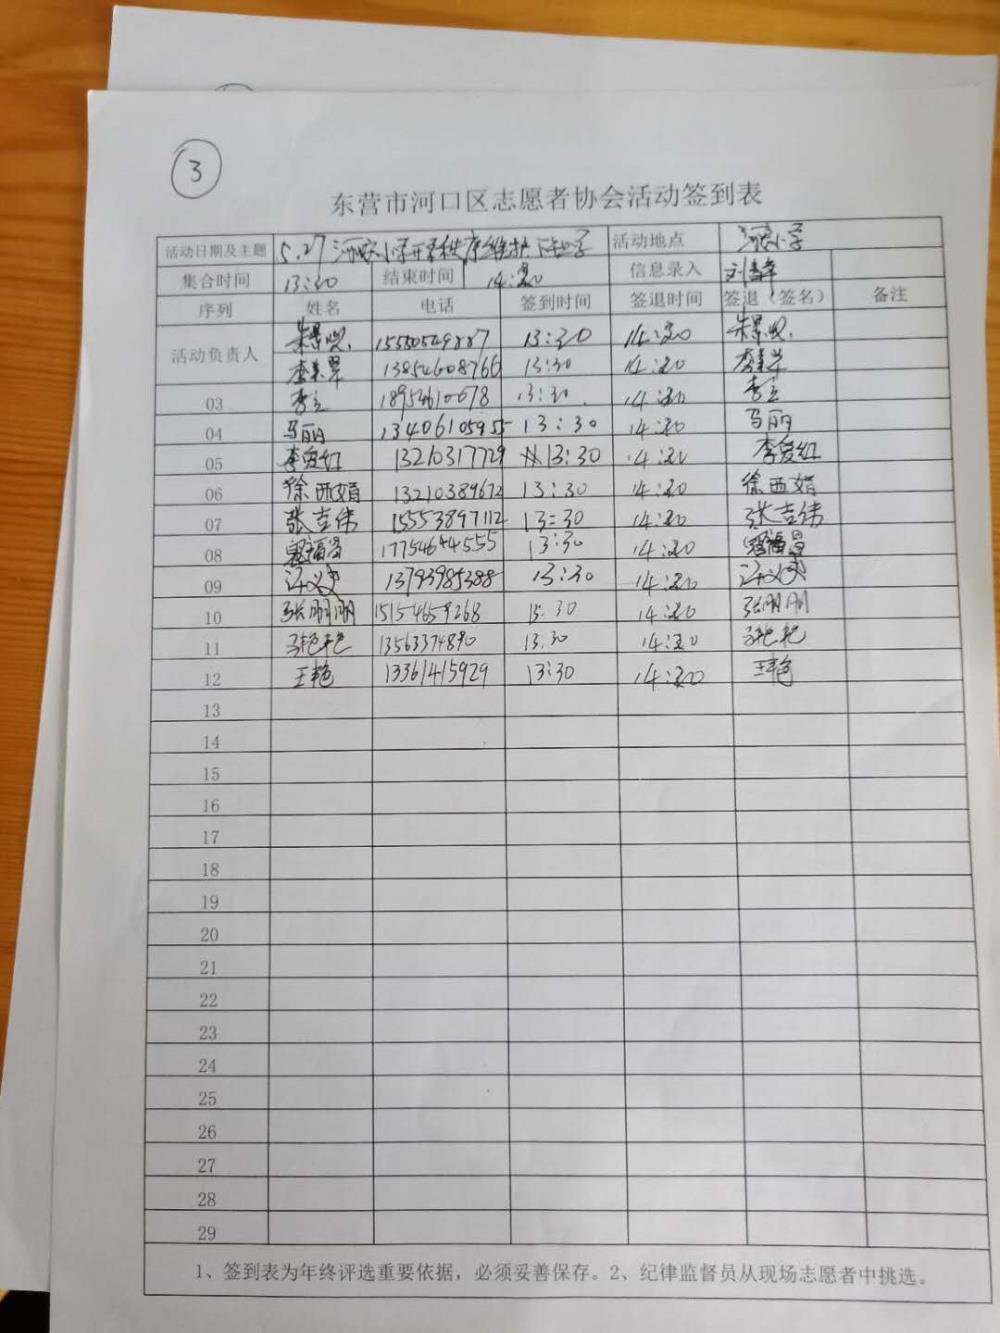 3
东营市河口区志愿者协会活动签到表
活动日期及主题 5.27 河安小学开学秩序维护 下午学 活动地点 河安小学
集合时间 13:30 结束时间 14:20 信息录入
序列 姓名 电话 签到时间 签退时间 签退（签名） 备注
活动负责人 15550549887 13:30 14:20
13854608766 13:30 14:20
03 李立 18954610678 13:30 14:20 李立
04 马丽 13406105955 13:30 14:20 马丽
05 李爱红 13210317729 13:30 14:20 李爱红
06 徐西娟 13210389672 13:30 14:20 徐西娟
07 张吉伟 15553897112 13:30 14:20 张吉伟
08 17754644555 13:30 14:20
09 13793985388 13:30 14:20
10 张明明 15154659268 15:30 14:20 张明明
11 马艳艳 13563374890 13:30 14:20 马艳艳
12 王艳 13361415929 13:30 14:20 王艳
13
14
15
16
17
18
19
20
21
22
23
24
25
26
27
28
29
1、签到表为年终评选重要依据，必须妥善保存。2、纪律监督员从现场志愿者中挑选。